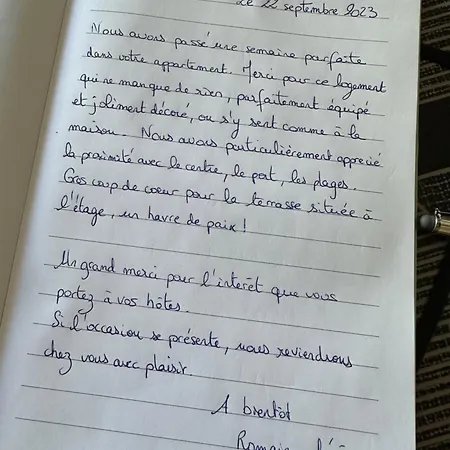 Le 22 septembre 2023
Nous avons passé une semaine parfaite
dans votre appartement. Merci pour ce logement
qui ne manque de rien, parfaitement équipé
et joliment décoré, ou s'y sent comme à la
maison. Nous avons particulièrement apprécié
la proximité avec le centre, le port, les plages.
Gros coup de coeur pour la terrasse située à
l'étage, un havre de paix!
Un grand merci pour l'intérêt que vous
portez à vos hôtes.
Si l'occasion se présente, nous reviendrons
chez vous avec plaisir.
A bientôt